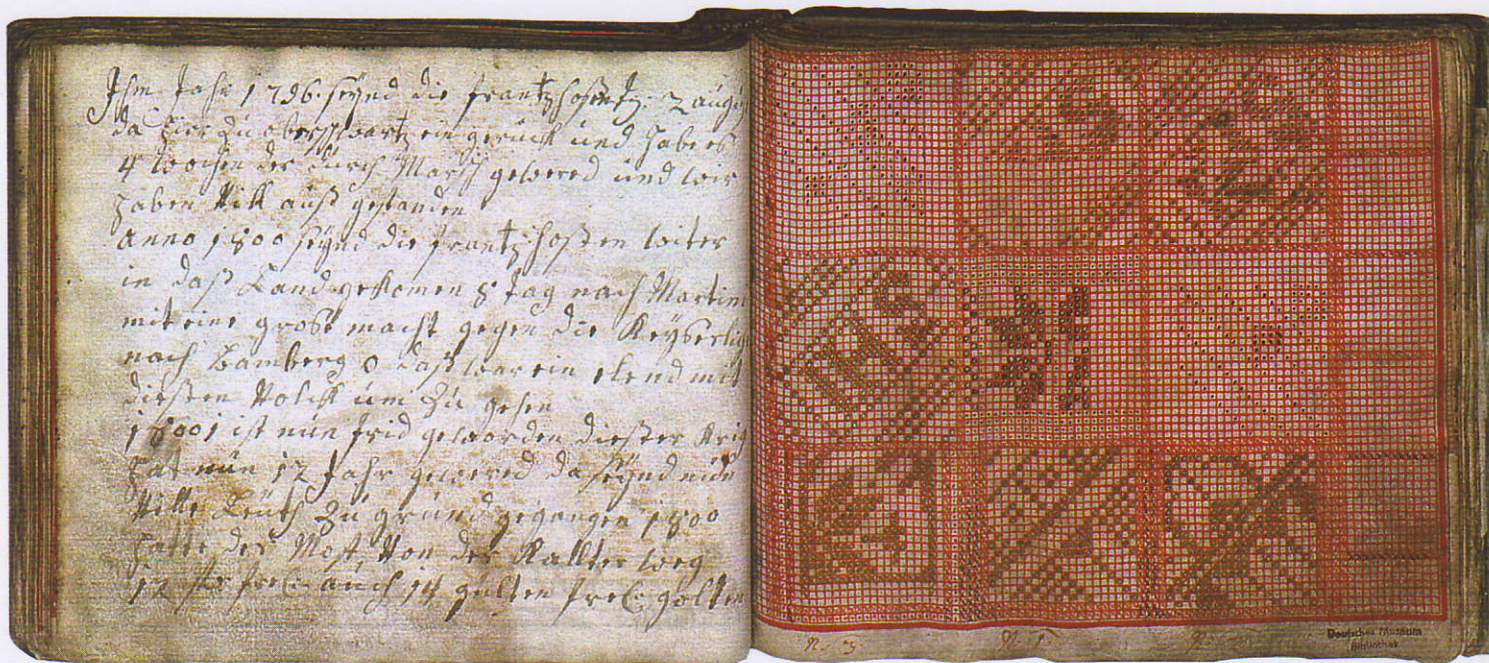 Ihm Jahr 1796 seynd die frantzhoßen d. 2 augu
da hier zu obersch​wartz ein geruck und hab es
4 wochen der durch Marsch gewered und wir
haben Vill auß gestanden
anno 1800 seynd die frantzhoßen witer
in daß Land gekomen 8 tag nach Martini
mit eine große macht gegen die Keyserlig
nach Bamberg O daß war ein elend mit
dießen Volck um zu gehen
18001 ist nun frid geworden dießer Krig
hat nun 12 Jahr gewered da seynd nun
Ville Leuth zu grund gegangen 1800
hatte der Most Von der Kallter weg
12 auch 14 gulten golten
N. 3 N. 1 N.
Deutsches Museum
Bibliothek